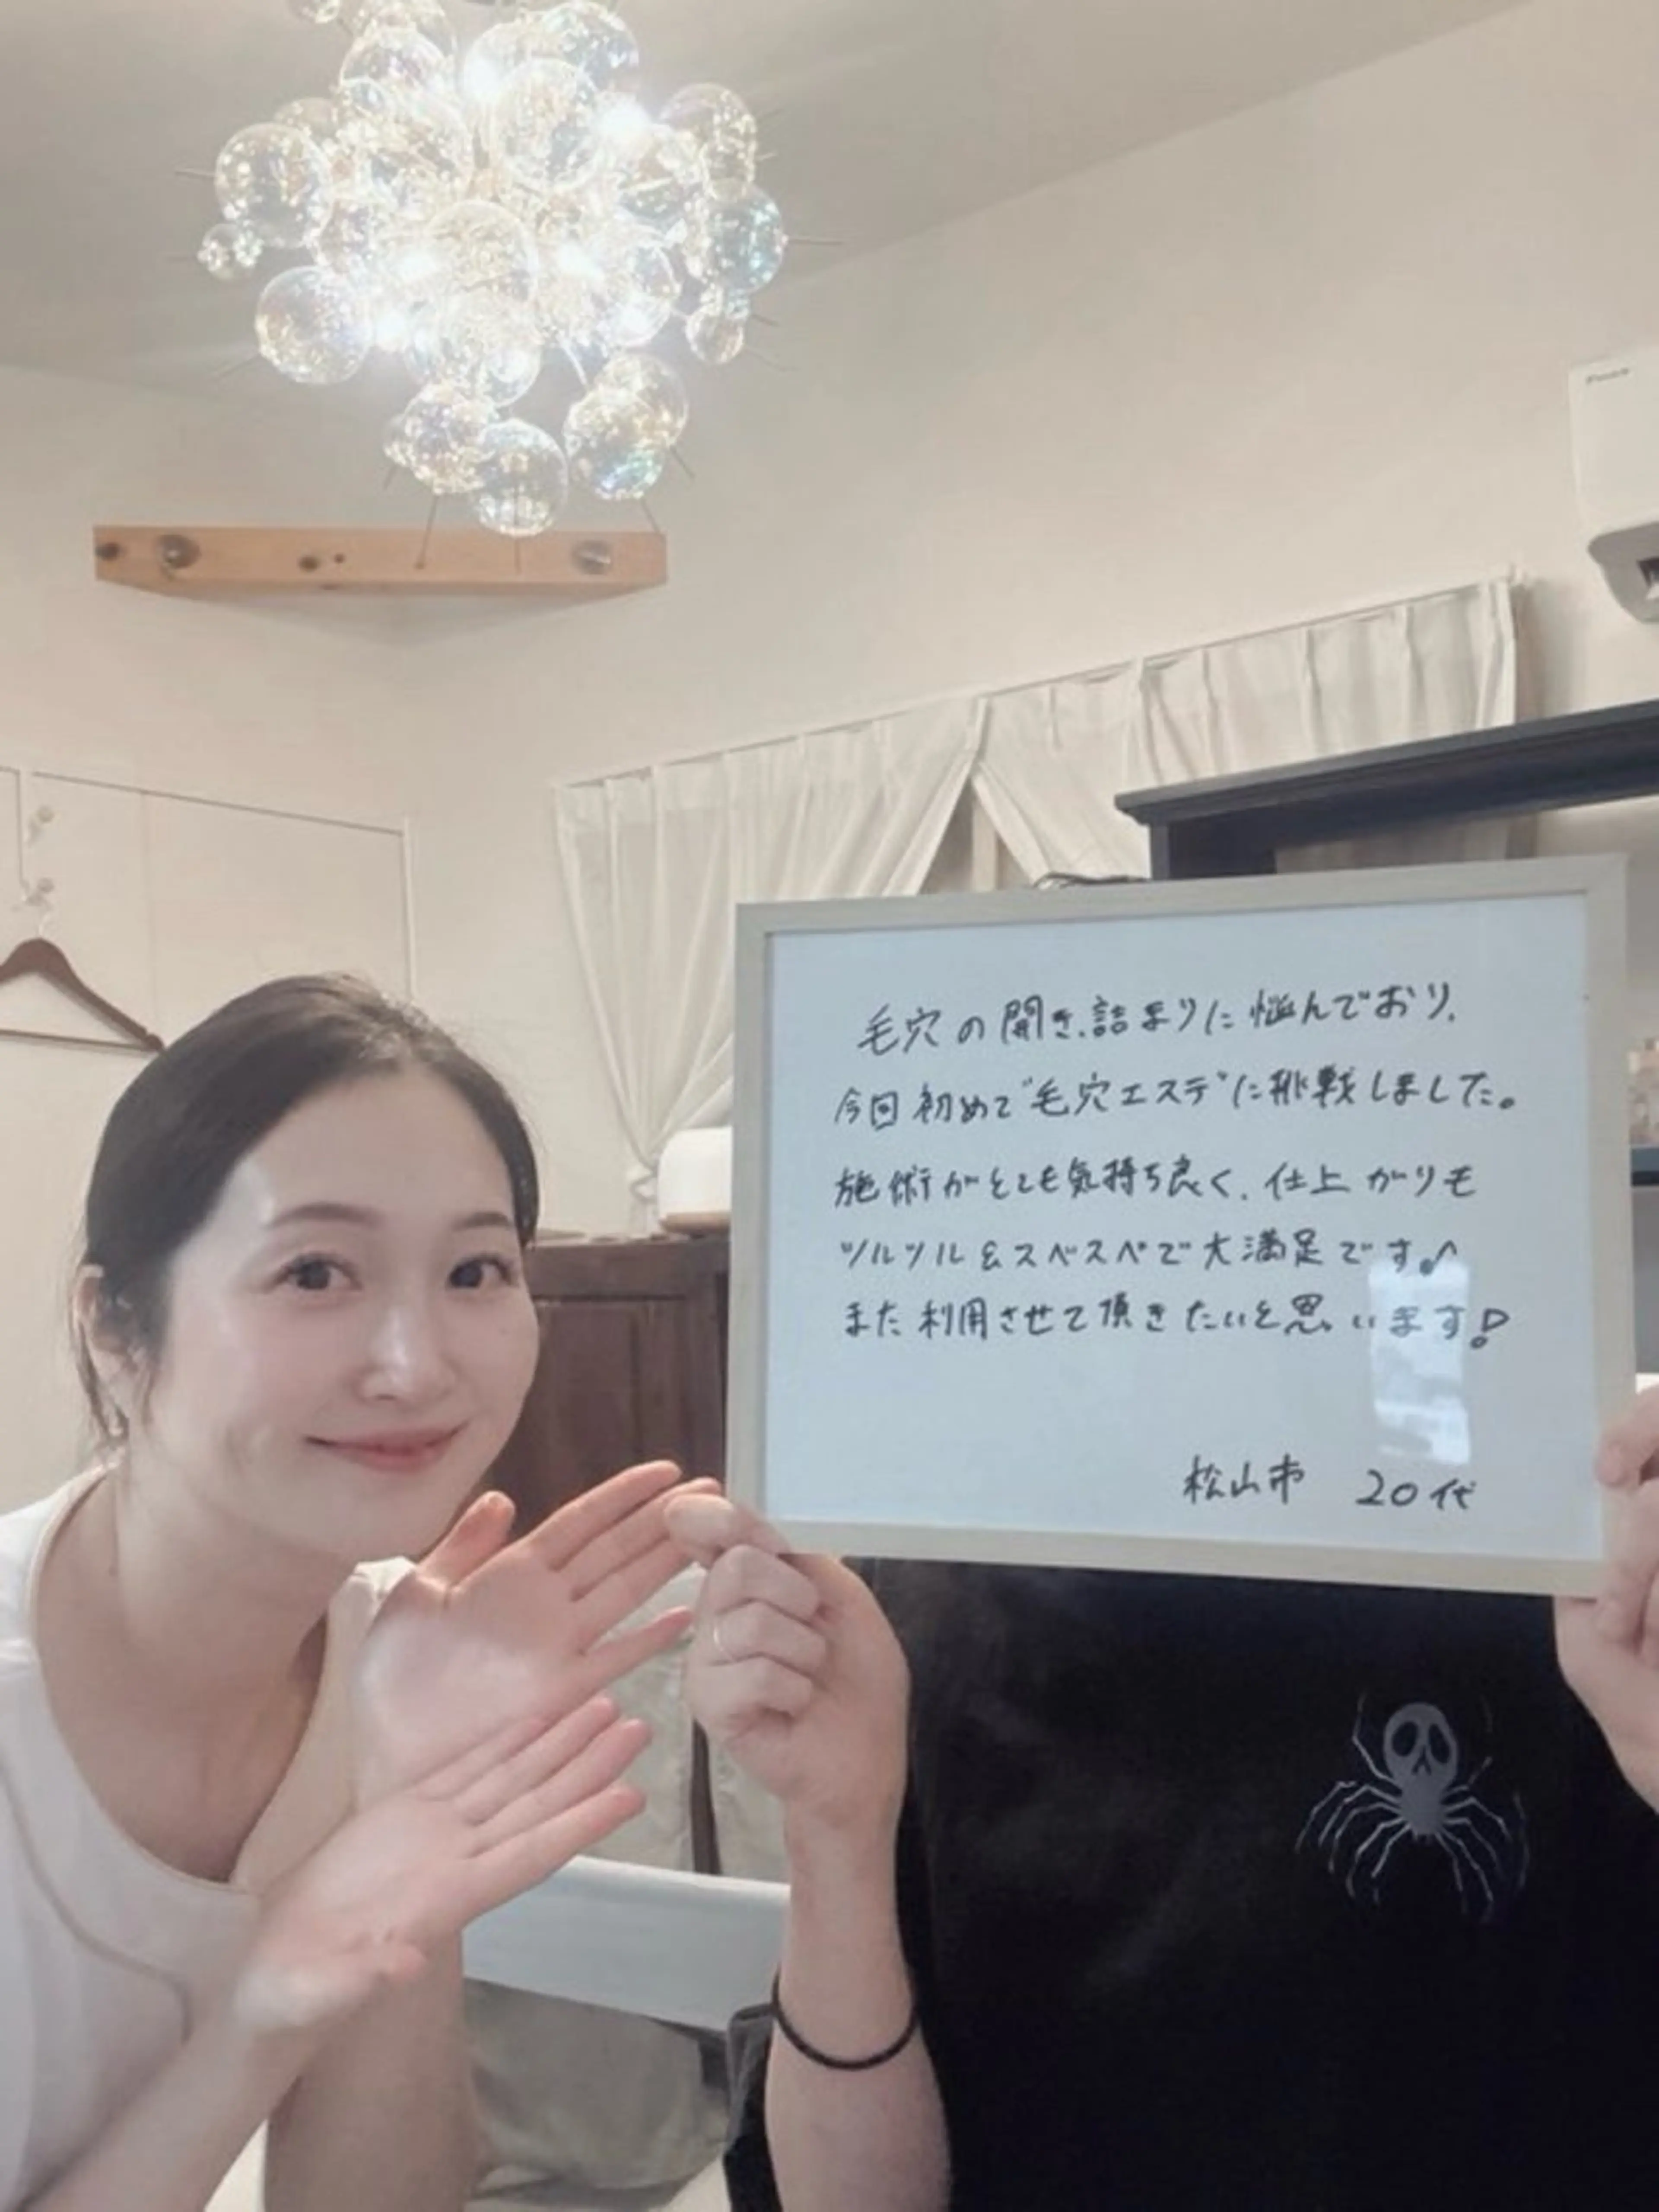 毛穴の開き、詰まりに悩んでおり、
今回初めて"毛穴エステ"に挑戦しました。
施術がとても気持ち良く、仕上がりも
ツルツル&スベスベで大満足です♪
また利用させて頂きたいと思います!
松山市 20代